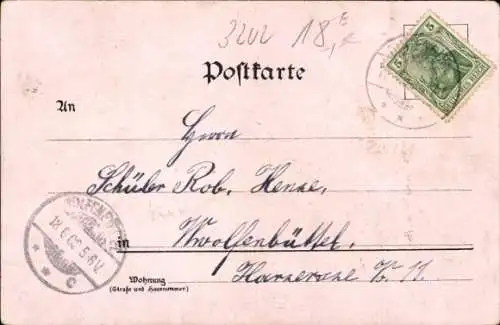 3202 18,-
Postkarte
An
Herrn
Schüler Rob. Henze,
in Wolfenbüttel.
Wohnung
(Straße und Hausnummer)
5 5